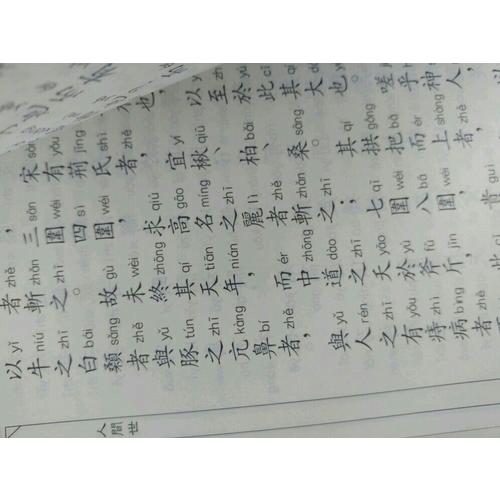 也，以至於此其大也。嗟乎神人，以
yě yǐ zhì yú cǐ qí dà yě
宋有荊氏者，宜楸、柏、桑。其拱把而上者，
sòng yǒu jīng shì zhě yí qiū bǎi sāng qí gǒng bǎ ér shàng zhě
三圍四圍，求高名之麗者斬之；七圍八圍，貴
sān wéi sì wéi qiú gāo míng zhī lì zhě zhǎn zhī qī wéi bā wéi guì
者斬之。故未終其天年，而中道之夭於斧斤，此
zhě zhǎn zhī gù wèi zhōng qí tiān nián ér zhōng dào zhī yāo yú fǔ jīn
以牛之白顙者與豚之亢鼻者，與人之有痔病者
yǐ niú zhī bái sǎng zhě yǔ tún zhī kàng bí zhě yǔ rén zhī yǒu zhì bìng zhě
人間世